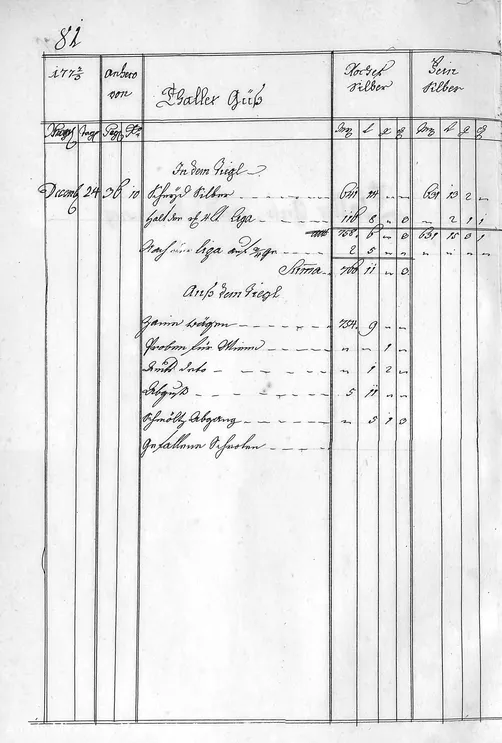 82
177 2/3 anhero von Thaller Guß Rochet Silber Fein Silber
Monat Tage Pag No Mrg l q d Mrg l q d
In dem Tiegl
Decemb 24 36 10 Silber 641 14 " " 631 13 2 "
Liga 116 8 " 0 " 2 1 1
758. 6 " 0 631 15 0 1
Nach liga auf 2 5 " " " " " "
Suma 760 11 " 0
Auß dem Tiegl
Zaine wägen 754. 9 " "
Proben für Wienn " " 1 "
detto " 1 2 "
Abguß 5 11 " "
Schmöltz Abgang " 5 1 0
Gefallene Schroten